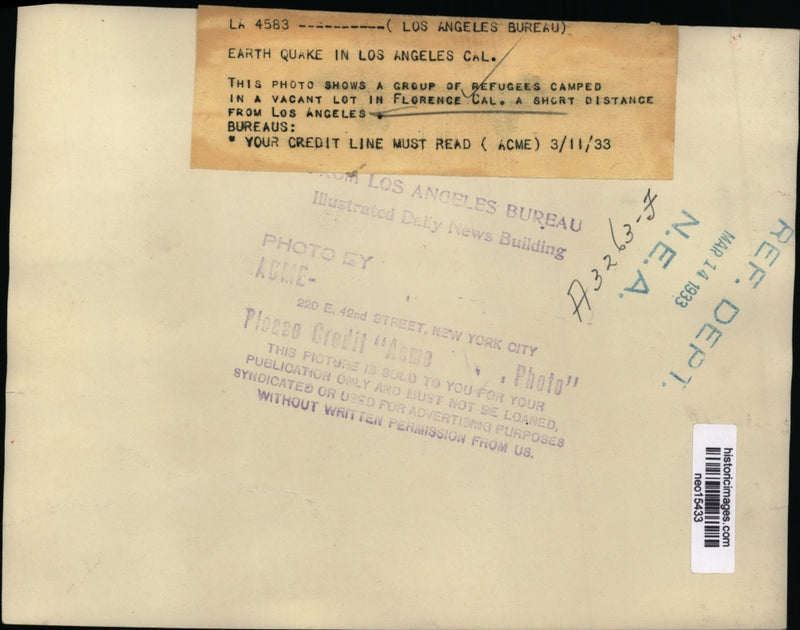 LA 4583 ----------( LOS ANGELES BUREAU)
EARTH QUAKE IN LOS ANGELES CAL.
THIS PHOTO SHOWS A GROUP OF REFUGEES CAMPED
IN A VACANT LOT IN FLORENCE CAL. A SHORT DISTANCE
FROM LOS ANGELES .
BUREAUS:
" YOUR CREDIT LINE MUST READ ( ACME) 3/11/33
FROM LOS ANGELES BUREAU
Illustrated Daily News Building
PHOTO BY
ACME-
220 E. 42nd STREET, NEW YORK CITY
Please Credit "Acme Photo"
THIS PICTURE IS SOLD TO YOU FOR YOUR
PUBLICATION ONLY AND MUST NOT BE LOANED,
SYNDICATED OR USED FOR ADVERTISING PURPOSES
WITHOUT WRITTEN PERMISSION FROM US.
A3263-F
N.E.A.
MAR 14 1933
REF. DEPT.
historicimages.com
neo15433